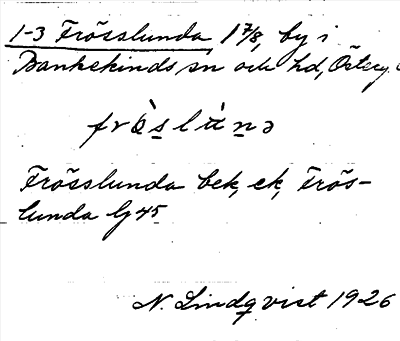 1-3 Frösslunda 1 7/8, by i
Bankekinds sn och hd, Österg.
frö̀slùnə
Frösslunda bek, ek, Frös-
lunda Gj 45
N. Lindqvist 1926